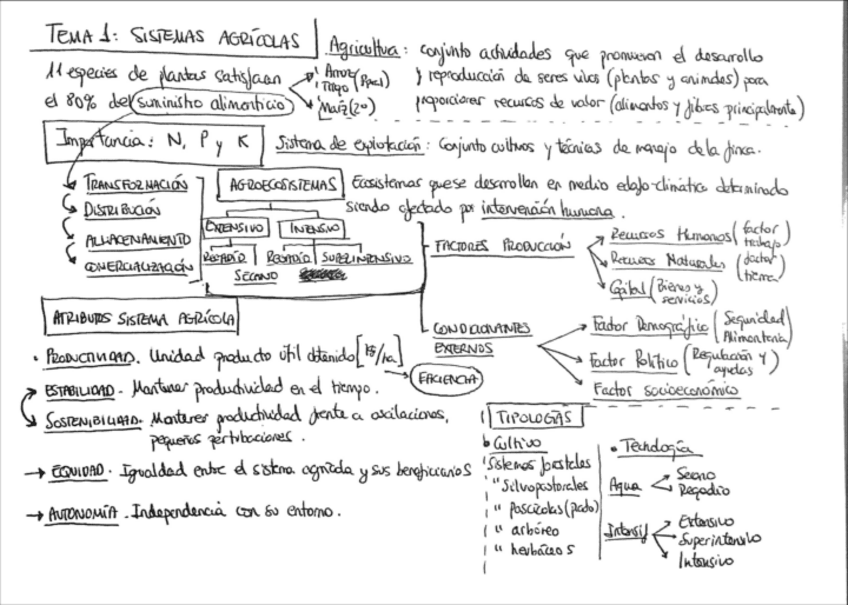 TEMA 1: SISTEMAS AGRÍCOLAS
Agricultura: conjunto actividades que promueven el desarrollo
y reproducción de seres vivos (plantas y animales) para
proporcionar recursos de valor (alimentos y fibras principalmente)
11 especies de plantas satisfacen
el 80% del suministro alimenticio
Arroz
Trigo
Maíz (20)
Importancia: N, P y K
Sistema de explotación: Conjunto cultivos y técnicas de manejo de la finca.
TRANSFORMACIÓN
DISTRIBUCIÓN
ALMACENAMIENTO
COMERCIALIZACIÓN
AGROECOSISTEMAS
Ecosistemas que se desarrollan en medio edafo-climático determinado
siendo afectado por intervención humana.
EXTENSIVO INTENSIVO
REGADÍO REGADÍO SUPERINTENSIVO
SECANO
FACTORES PRODUCCIÓN
Recursos Humanos (factor
trabajo)
Recursos Naturales (factor
tierra)
Capital (Bienes y
servicios)
CONDICIONANTES
EXTERNOS
Factor Demográfico (Seguridad
Alimentaria)
Factor Político (Regulación y
ayudas)
Factor socioeconómico
ATRIBUTOS SISTEMA AGRÍCOLA
• PRODUCTIVIDAD. Unidad producto útil obtenido [kg/ha]
EFICIENCIA
ESTABILIDAD. Mantener productividad en el tiempo.
SOSTENIBILIDAD. Mantener productividad frente a oscilaciones,
pequeñas pertubaciones.
→ EQUIDAD. Igualdad entre el sistema agrícola y sus beneficiarios
→ AUTONOMÍA. Independencia con su entorno.
TIPOLOGÍAS
Cultivo
Sistemas forestales
" Silvopastorales
" pascícolas (pasto)
" arbóreo
" herbáceos
• Tecnología
Agua
Secano
Regadío
Intensif
Extensivo
Superintensivo
Intensivo